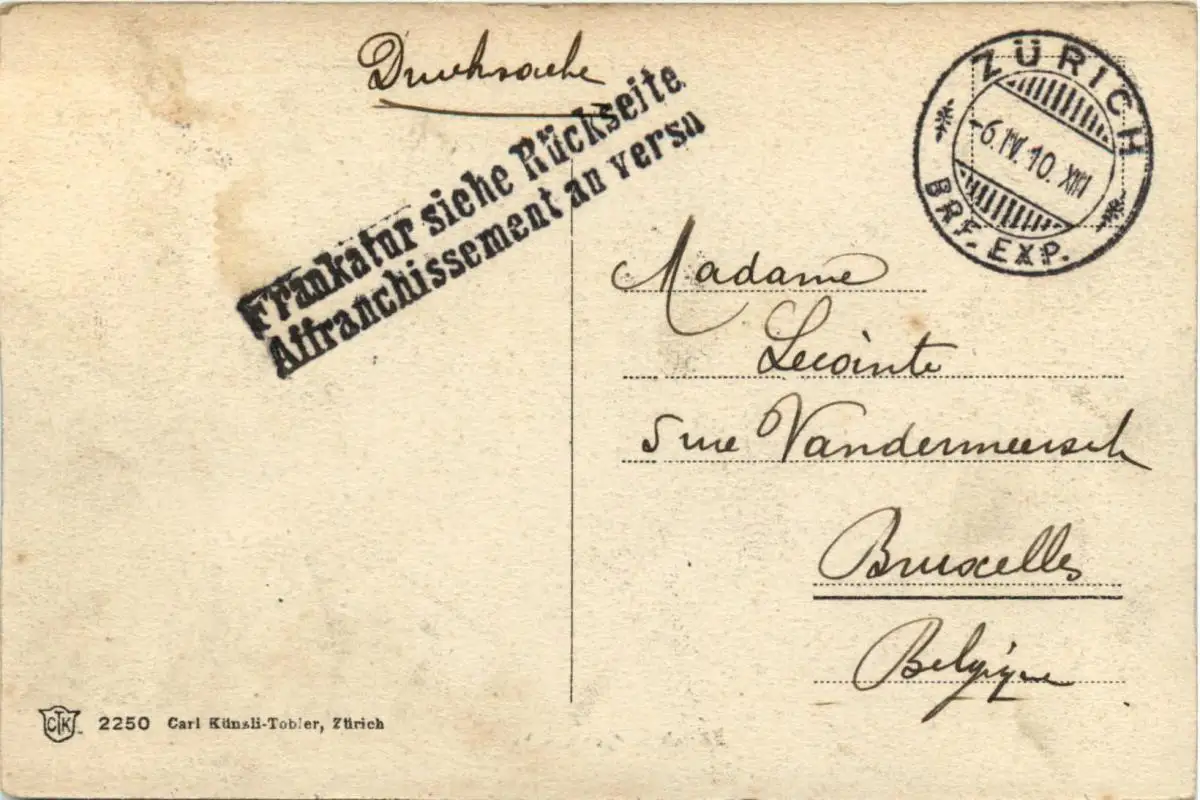 Drucksache
Frankatur siehe Rückseite
Affranchissement au verso
ZÜRICH
-6.IV.10.XII
BRF. EXP.
Madame
Lecointe
5 rue Vandermeersch
Bruxelles
Belgique
CTK 2250 Carl Künzli-Tobler, Zürich